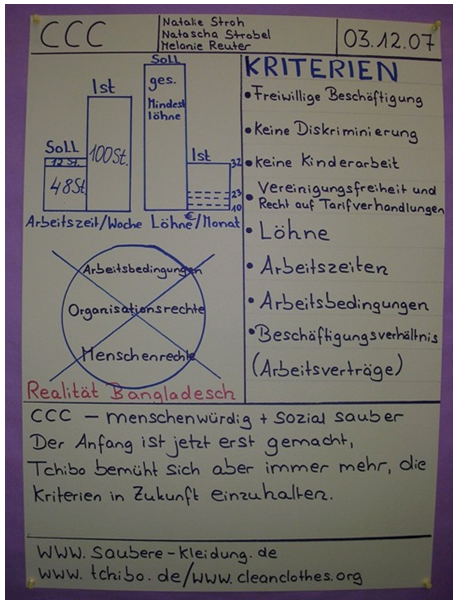 CCC
Natalie Stroh
Natascha Strobel
Melanie Reuter
03.12.07
Soll
12 St.
48 St.
Ist
100 St.
Soll
ges.
Mindest
löhne
Ist
32
23
10
€
Arbeitszeit/Woche Löhne/Monat
Arbeitsbedingungen
Organisationsrechte
Menschenrechte
Realität Bangladesch
KRITERIEN
• Freiwillige Beschäftigung
• Keine Diskriminierung
• keine Kinderarbeit
• Vereinigungsfreiheit und
Recht auf Tarifverhandlungen
• Löhne
• Arbeitszeiten
• Arbeitsbedingungen
• Beschäftigungsverhältnis
(Arbeitsverträge)
CCC – menschenwürdig + sozial sauber
Der Anfang ist jetzt erst gemacht,
Tchibo bemüht sich aber immer mehr, die
Kriterien in Zukunft einzuhalten.
www.saubere-kleidung.de
www.tchibo.de/www.cleanclothes.org